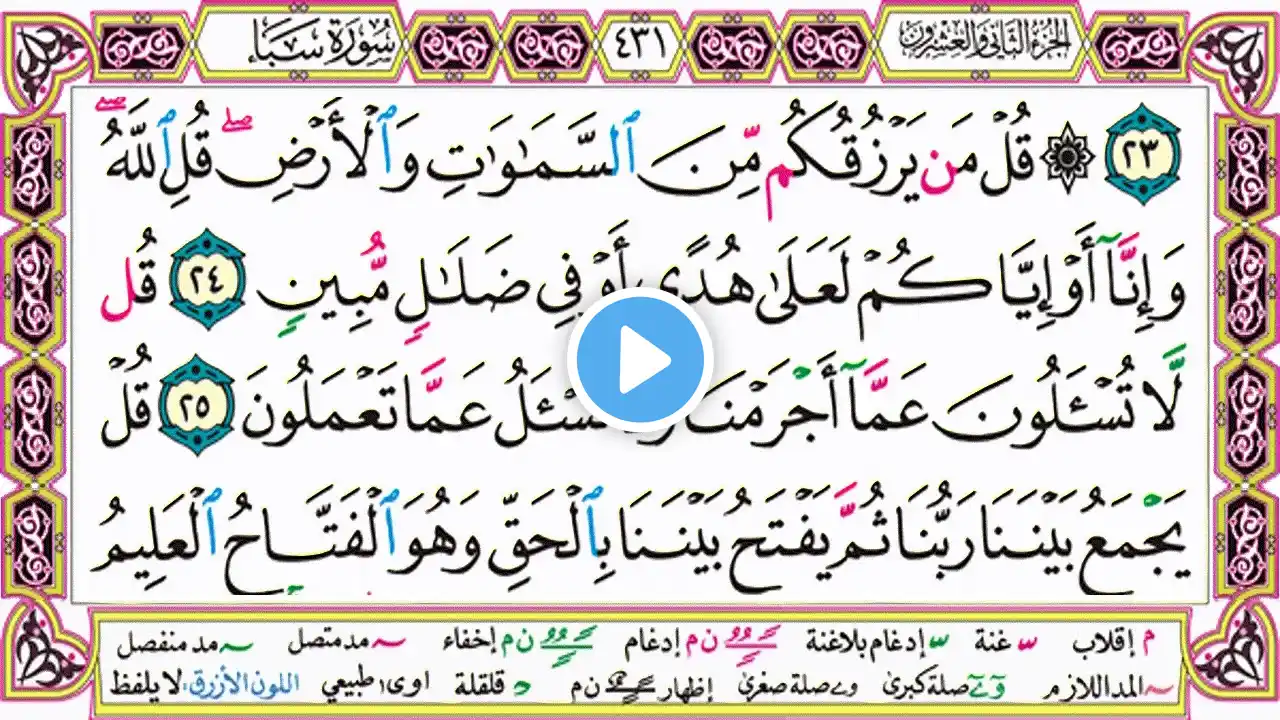 الجزء الثاني والعشرون ٤٣١ سُورَةُ سَبَأ
٢٣ ۞ قُلْ مَن يَرْزُقُكُم مِّنَ ٱلسَّمَٰوَٰتِ وَٱلْأَرْضِ ۖ قُلِ ٱللَّهُ ۖ
وَإِنَّآ أَوْ إِيَّاكُمْ لَعَلَىٰ هُدًى أَوْ فِى ضَلَٰلٍ مُّبِينٍ ٢٤ قُل
لَّا تُسْـَٔلُونَ عَمَّآ أَجْرَمْنَا نُسْـَٔلُ عَمَّا تَعْمَلُونَ ٢٥ قُلْ
يَجْمَعُ بَيْنَنَا رَبُّنَا ثُمَّ يَفْتَحُ بَيْنَنَا بِٱلْحَقِّ وَهُوَ ٱلْفَتَّاحُ ٱلْعَلِيمُ
م إقلاب غنة إدغام بلاغنة ن م إدغام ن م إخفاء مد متصل مد منفصل
المد اللازم صلة كبرى صلة صغرى إظهار ن م قلقلة اوى طبيعي اللون الأزرق: لا يلفظ